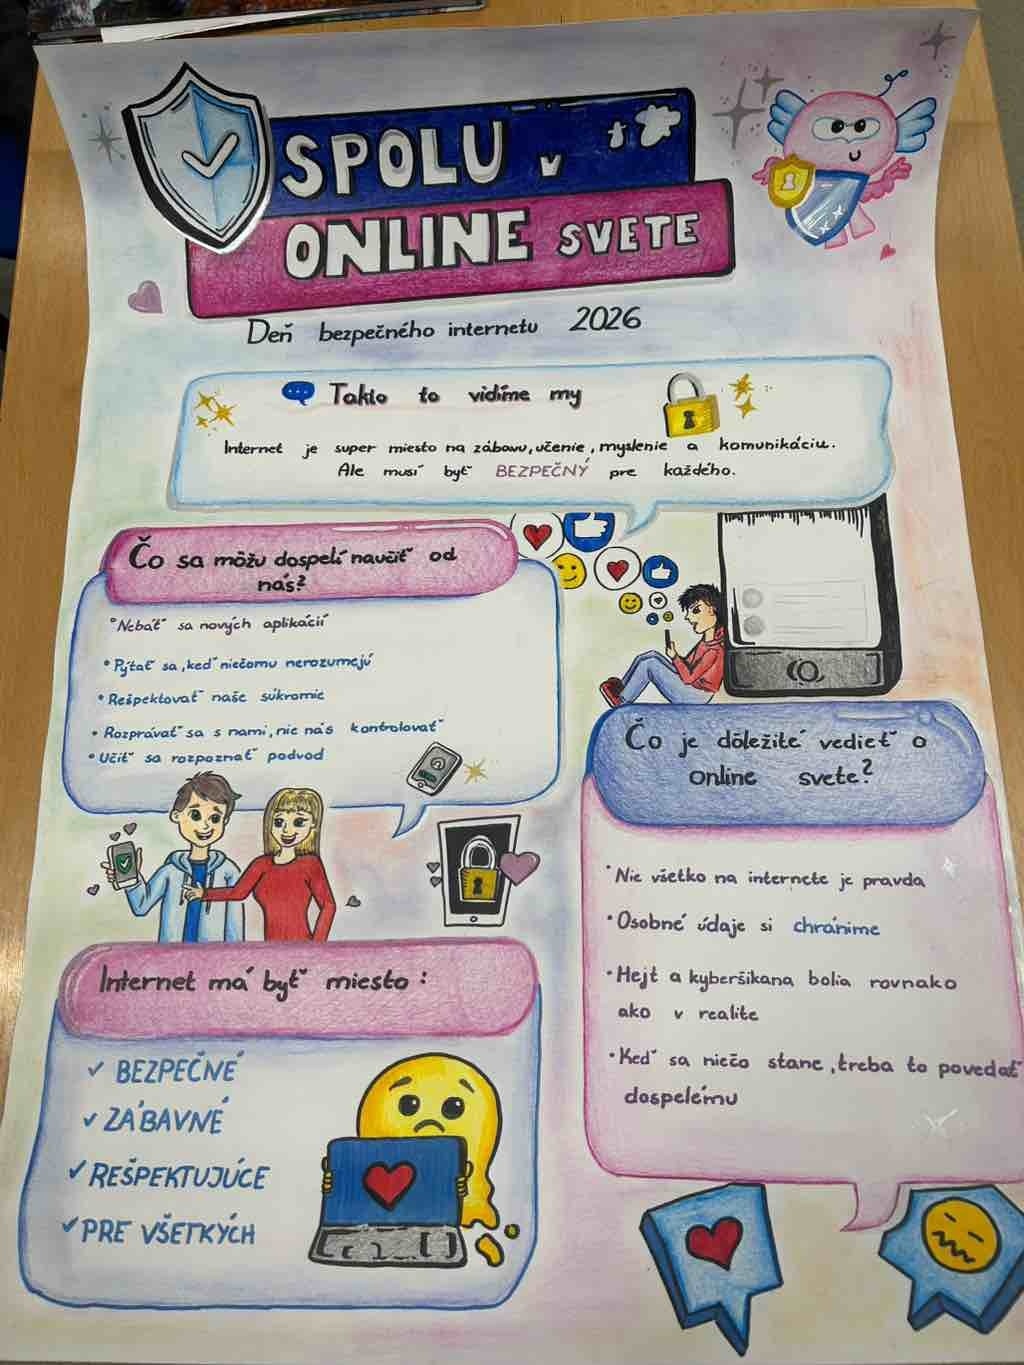 SPOLU v
ONLINE SVETE
Deň bezpečného internetu 2026
Takto to vidíme my
Internet je super miesto na zábavu, učenie, myslenie a komunikáciu.
Ale musí byť BEZPEČNÝ pre každého.
Čo sa môžu dospelí naučiť od
nás?
Nebáť sa nových aplikácií
• Pýtať sa, keď niečomu nerozumejú
• Rešpektovať naše súkromie
• Rozprávať sa s nami, nie nás kontrolovať
• Učiť sa rozpoznať podvod
Čo je dôležité vedieť o
online svete?
• Nie všetko na internete je pravda
• Osobné údaje si chránime
• Hejt a kyberšikana bolia rovnako
ako v realite
• Keď sa niečo stane, treba to povedať
dospelému
Internet má byť miesto:
✓ BEZPEČNÉ
✓ ZÁBAVNÉ
✓ REŠPEKTUJÚCE
✓ PRE VŠETKÝCH